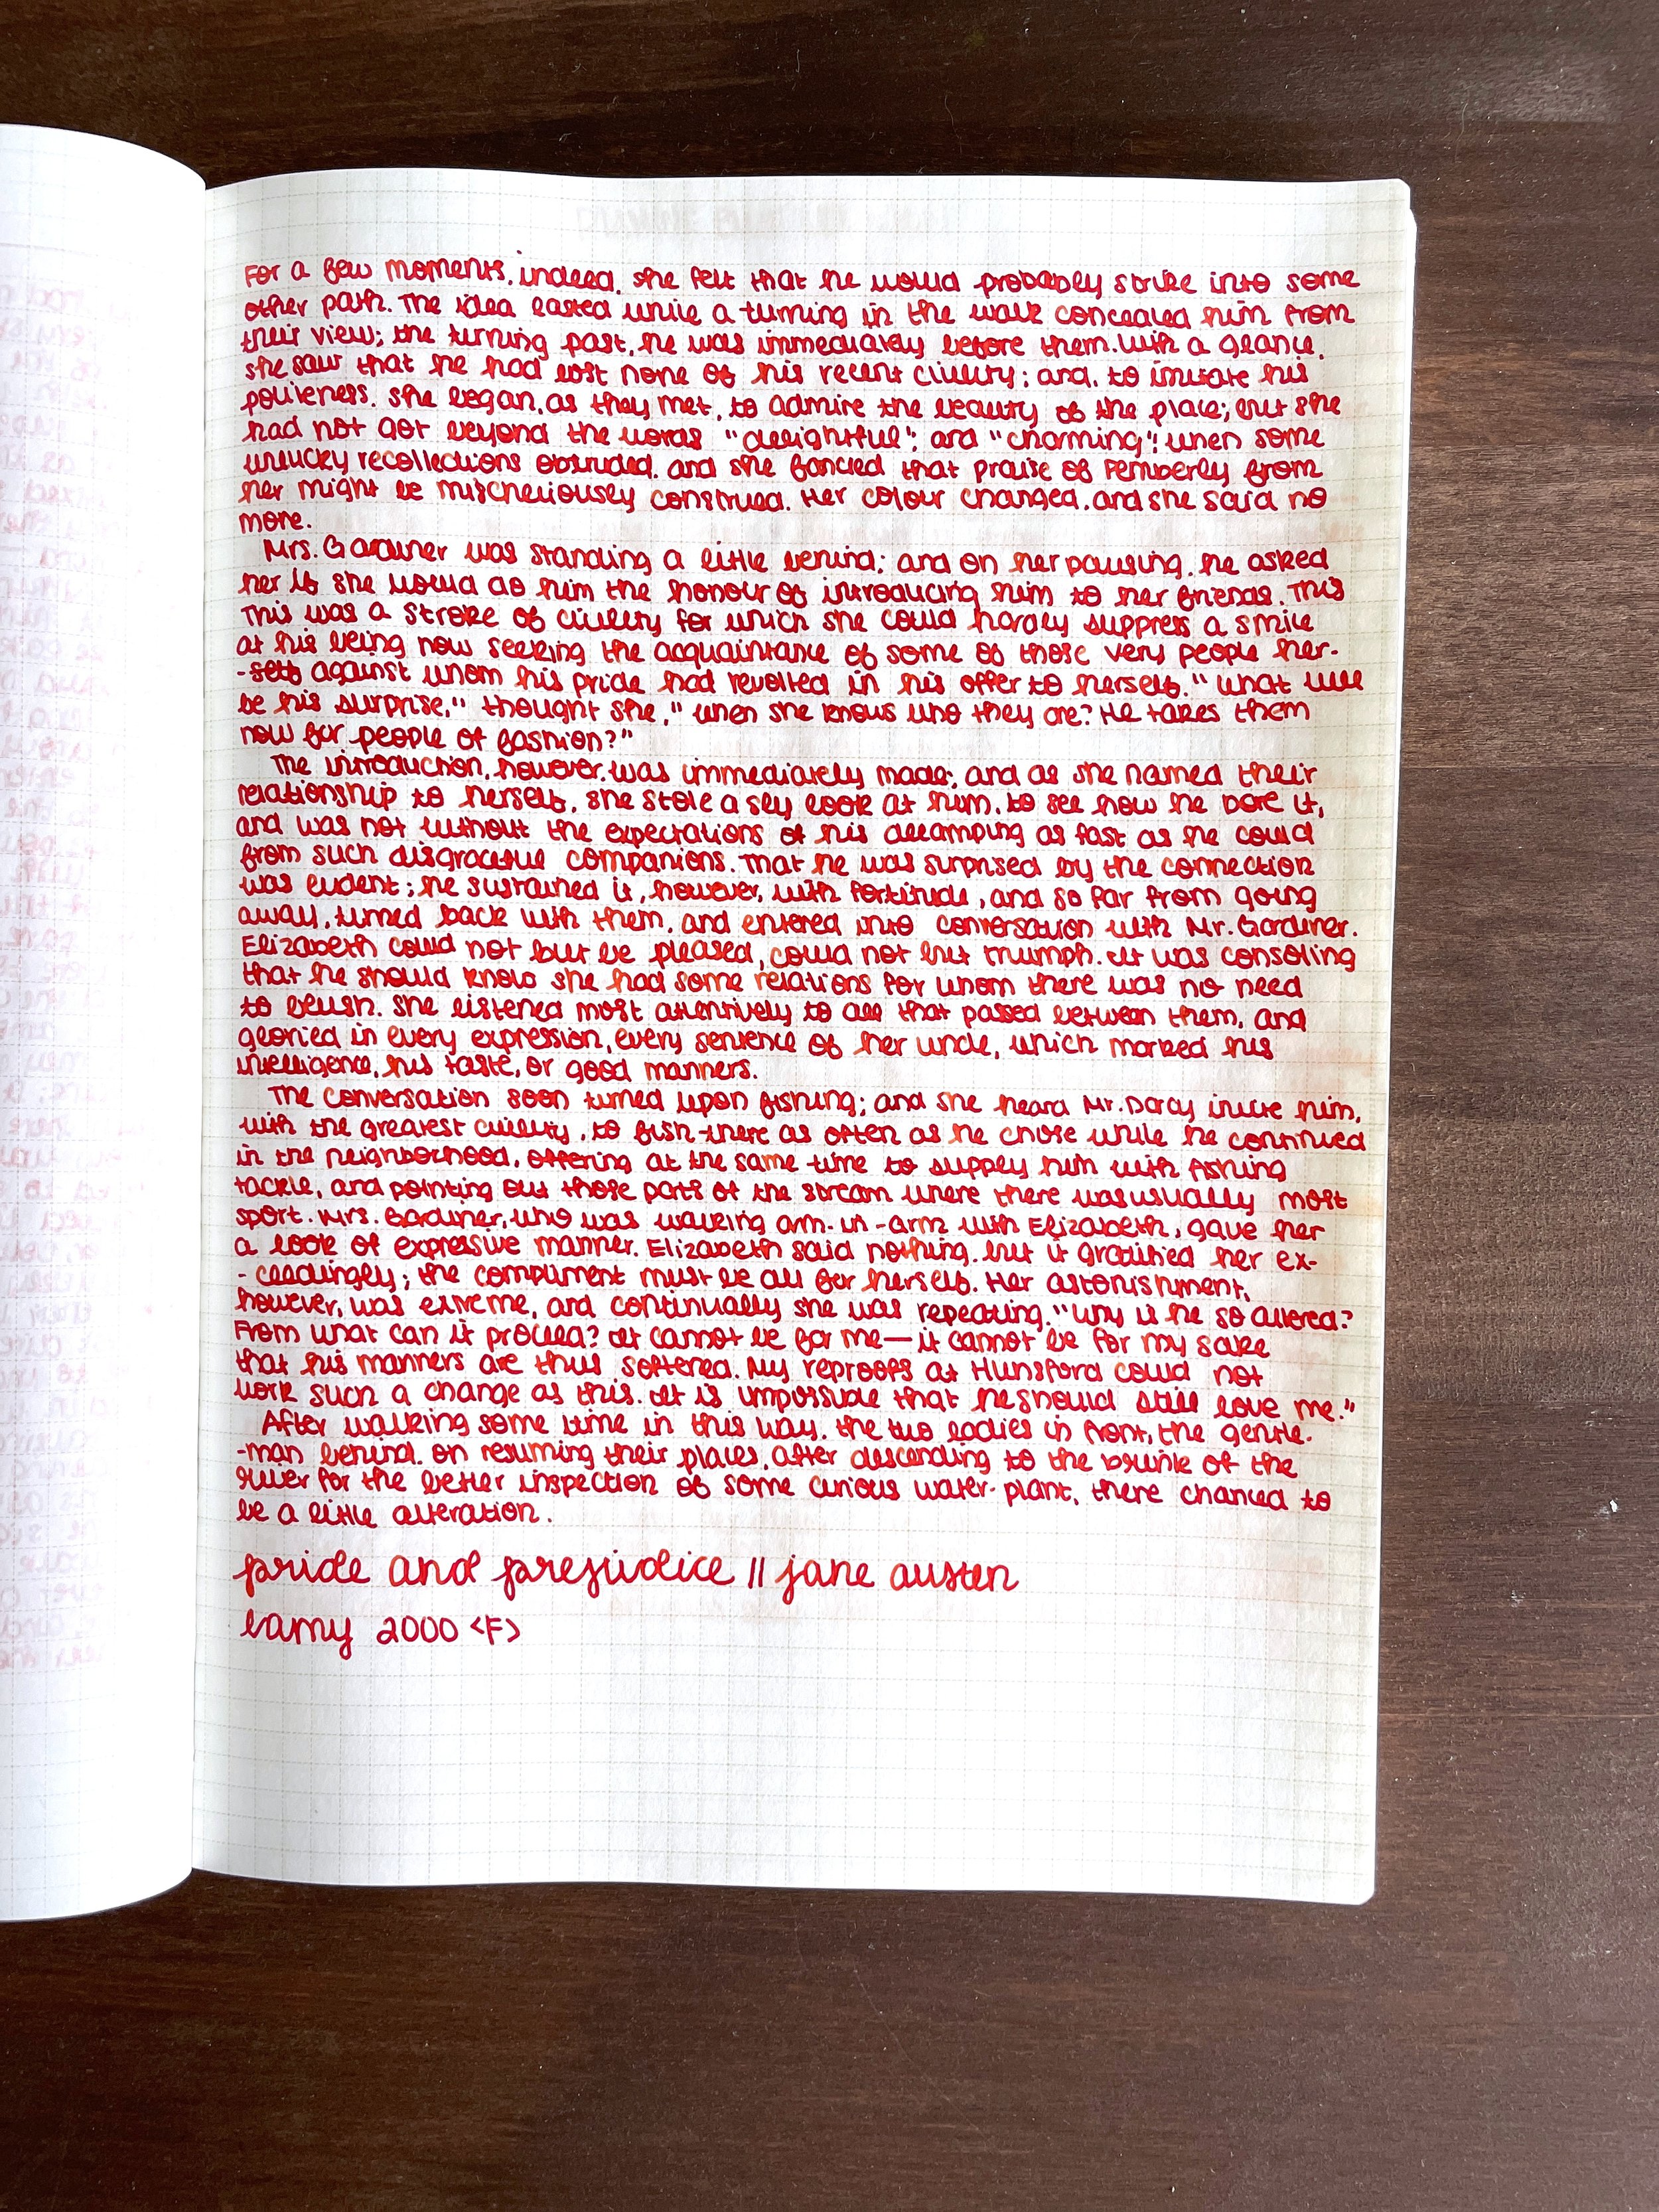 For a few moments, indeed, she felt that he would probably strike into some
other path. The idea lasted while a turning in the walk concealed him from
their view; the turning past, he was immediately before them. With a glance,
she saw that he had lost none of his recent civility; and, to imitate his
politeness, she began, as they met, to admire the beauty of the place; but she
had not got beyond the words "delightful", and "charming", when some
unlucky recollections obtruded, and she fancied that praise of Pemberley from
her might be mischeviously construed. Her colour changed, and she said no
more.
Mrs. Gardiner was standing a little behind; and on her pausing, he asked
her if she would do him the honour of introducing him to her friends. This
This was a stroke of civility for which she could hardly suppress a smile
at his being now seeking the acquaintance of some of those very people her-
-self against whom his pride had revolted in his offer to herself. "What will
be his surprise," thought she, "when she knows who they are? He takes them
now for people of fashion?"
The introduction, however, was immediately made; and as she named their
relationship to herself, she stole a sly look at him, to see how he bore it,
and was not without the expectations of his decamping as fast as he could
from such disgraceful companions. That he was surprised by the connection
was evident; he sustained it, however, with fortitude, and so far from going
away, turned back with them, and entered into conversation with Mr. Gardiner.
Elizabeth could not but be pleased, could not but triumph. It was consoling
that he should know she had some relations for whom there was no need
to blush. She listened most attentively to all that passed between them, and
gloried in every expression, every sentence of her uncle, which marked his
intelligence, his taste, or good manners.
The conversation soon turned upon fishing; and she heard Mr. Darcy invite him,
with the greatest civility, to fish there as often as he chose while he continued
in the neighborhood, offering at the same time to supply him with fishing
tackle, and pointing out those parts of the stream where there was usually most
sport. Mrs. Gardiner, who was walking arm-in-arm with Elizabeth, gave her
a look of expressive manner. Elizabeth said nothing, but it gratified her ex-
-ceedingly; the compliment must be all for herself. Her astonishment,
however, was extreme, and continually she was repeating, "Why is he so altered?
From what can it proceed? It cannot be for me— it cannot be for my sake
that his manners are thus softened. My reproofs at Hunsford could not
work such a change as this. It is impossible that he should still love me."
After walking some time in this way, the two ladies in front, the gentle-
-man behind, on resuming their places, after descending to the brink of the
river for the better inspection of some curious water-plant, there chanced to
be a little alteration.
pride and prejudice || jane austen
lamy 2000 <F>